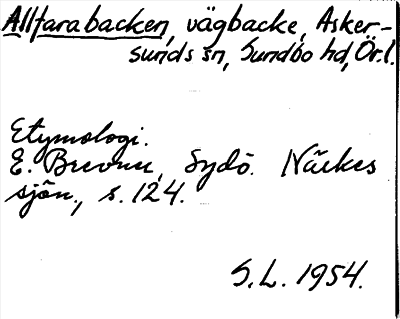 Alltarabacken, vägbacke, Asker-
sunds sn, Sundbo hd, Ör.l.
Etymologi.
E. Brevner, Sydö. Näckes
sjön., s. 124.
S.L. 1954.